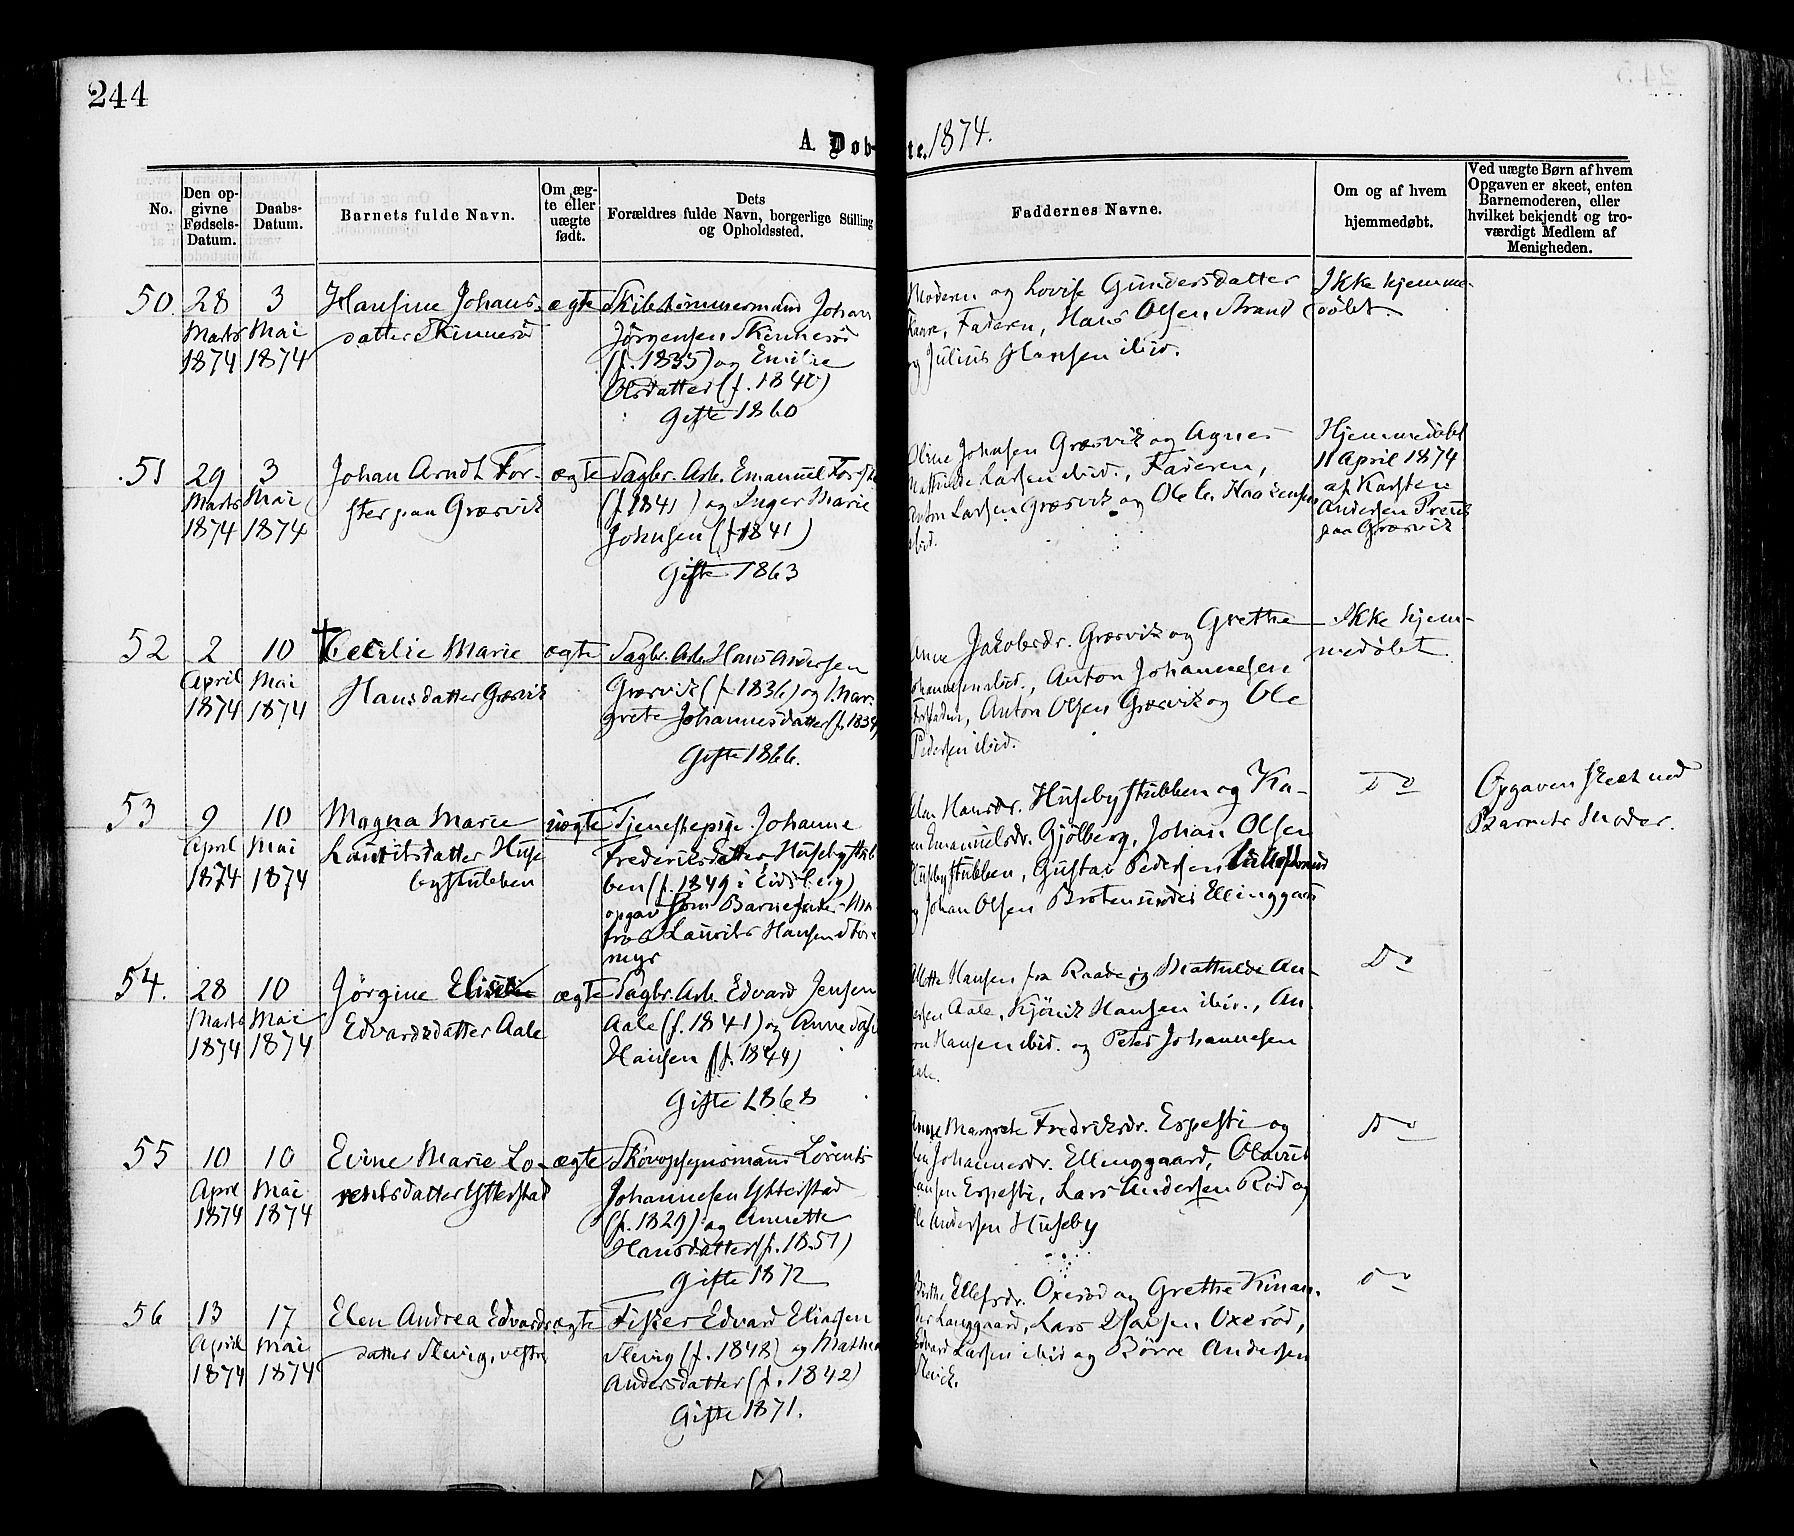 244
A. Døb- te. 1874.
No.
Den op-
givne
Fødsels-
Datum.
Daabs-
Datum.
Barnets fulde Navn.
Om æg-
te eller
uægte
født.
Dets
Forældres fulde Navn, borgerlige Stilling
og Opholdssted.
Faddernes Navne.
Om og af hvem
hjemmedøbt.
Ved uægte Børn af hvem
Opgaven er skeet, enten
Barnemoderen, eller
hvilket bekjendt og tro-
værdigt Medlem af
Menigheden.
50.
28
Marts
1874
3
Mai
1874
Hansine Johans-
datter Skinnerød
ægte
Skibstømmermand Johan
Jørgensen Skinnerød
(f. 1835) og Emilie
Olsdatter (f. 1840)
Gifte 1860
Moderen og Lovise Gundersdatter
Faderen, Hans Olsen Strand
og Julius Hansen ibid.
Ikke hjemme-
døbt
51
29
Marts
1874
3
Mai
1874
Johan Arndt For-
ster paa Græsvik
ægte
Sagbr. Arb. Emanuel Forster
(f. 1841) og Inger Marie
Johnsen (f. 1841)
Gifte 1863
Oline Johnsen Græsvik og Agnes
Mathilde Larsen ibid., Faderen,
Anton Larsen Græsvik og Ole Chr. Haakensen
ibid.
Hjemmedøbt
11 April 1874
af Karsten
Andersen
paa Græsvik
52
2
April
1874
10
Mai
1874
† Cecilie Marie
Hansdatter Græsvik
ægte
Sagbr. Arb. Hans Andersen
Græsvik (f. 1836) og Mar-
grete Johannesdatter (f. 1839)
Gifte 1866.
Anne Jakobsdr. Græsvik og Grethe
Johannesen ibid., Anton Johannesen
Anton Olsen Græsvik og Ole
Pedersen ibid.
Ikke hjem-
medøbt
53
9
April
1874
10
Mai
1874
Magna Marie
Lauritsdatter Huse-
bystubben
uægte
Tjenestepige Johanne
Frederiksdatter Husebystub-
ben (f. 1849 i Eidsberg)
opgav som Barnefader
fra Laurits Hansen
myr
Elen Hansdr. Husebystubben og Ka-
en Emanuelsdr. Gjølberg, Johan Olsen
Husebystubben, Gustav Pedersen
og Johan Olsen Bratens under Ellinggaard
Do
Opgaven skeet ved
Barnets Moder.
54.
28
Marts
1874
10
Mai
1874
Jørgine Elise
Edvardsdatter Aale
ægte
Sagbr. Arb. Edvard Jensen
Aale (f. 1841) og Anne
Hansen (f. 1844)
Gifte 1868
Hansen fra Raade og Mathilde An-
dersen Aale, Hansen ibid., An-
ton Hansen ibid. og Peter Johannesen
Aale.
Do
55
10
April
1874
10
Mai
1874
Evine Marie Lo-
rentsdatter Ytterstad
ægte
Skovopsynsmand Lorents
Johannesen Ytterstad
(f. 1829) og Annette
Hansdatter (f. 1851)
Gifte 1872
Anne Margrete Fredriksdr. Espesti og
Elen Johannesdr. Ellinggaard, Olavus
Hansen Espesti, Lars Andersen Rød og
Ole Andersen Huseby
Do
56
13
April
1874
17
Mai
1874
Elen Andrea Edvards-
datter Slevig, vestre
ægte
Fisker Edvard Eliasen
Slevig (f. 1848) og Mathea
Andersdatter (f. 1842)
Gifte 1871.
Birthe Ellefsdr. Oxerød og Grethe
Langgaard, Lars Olausen Oxerød,
Edvard Larsen ibid og Børre Andersen
Slevik.
Do